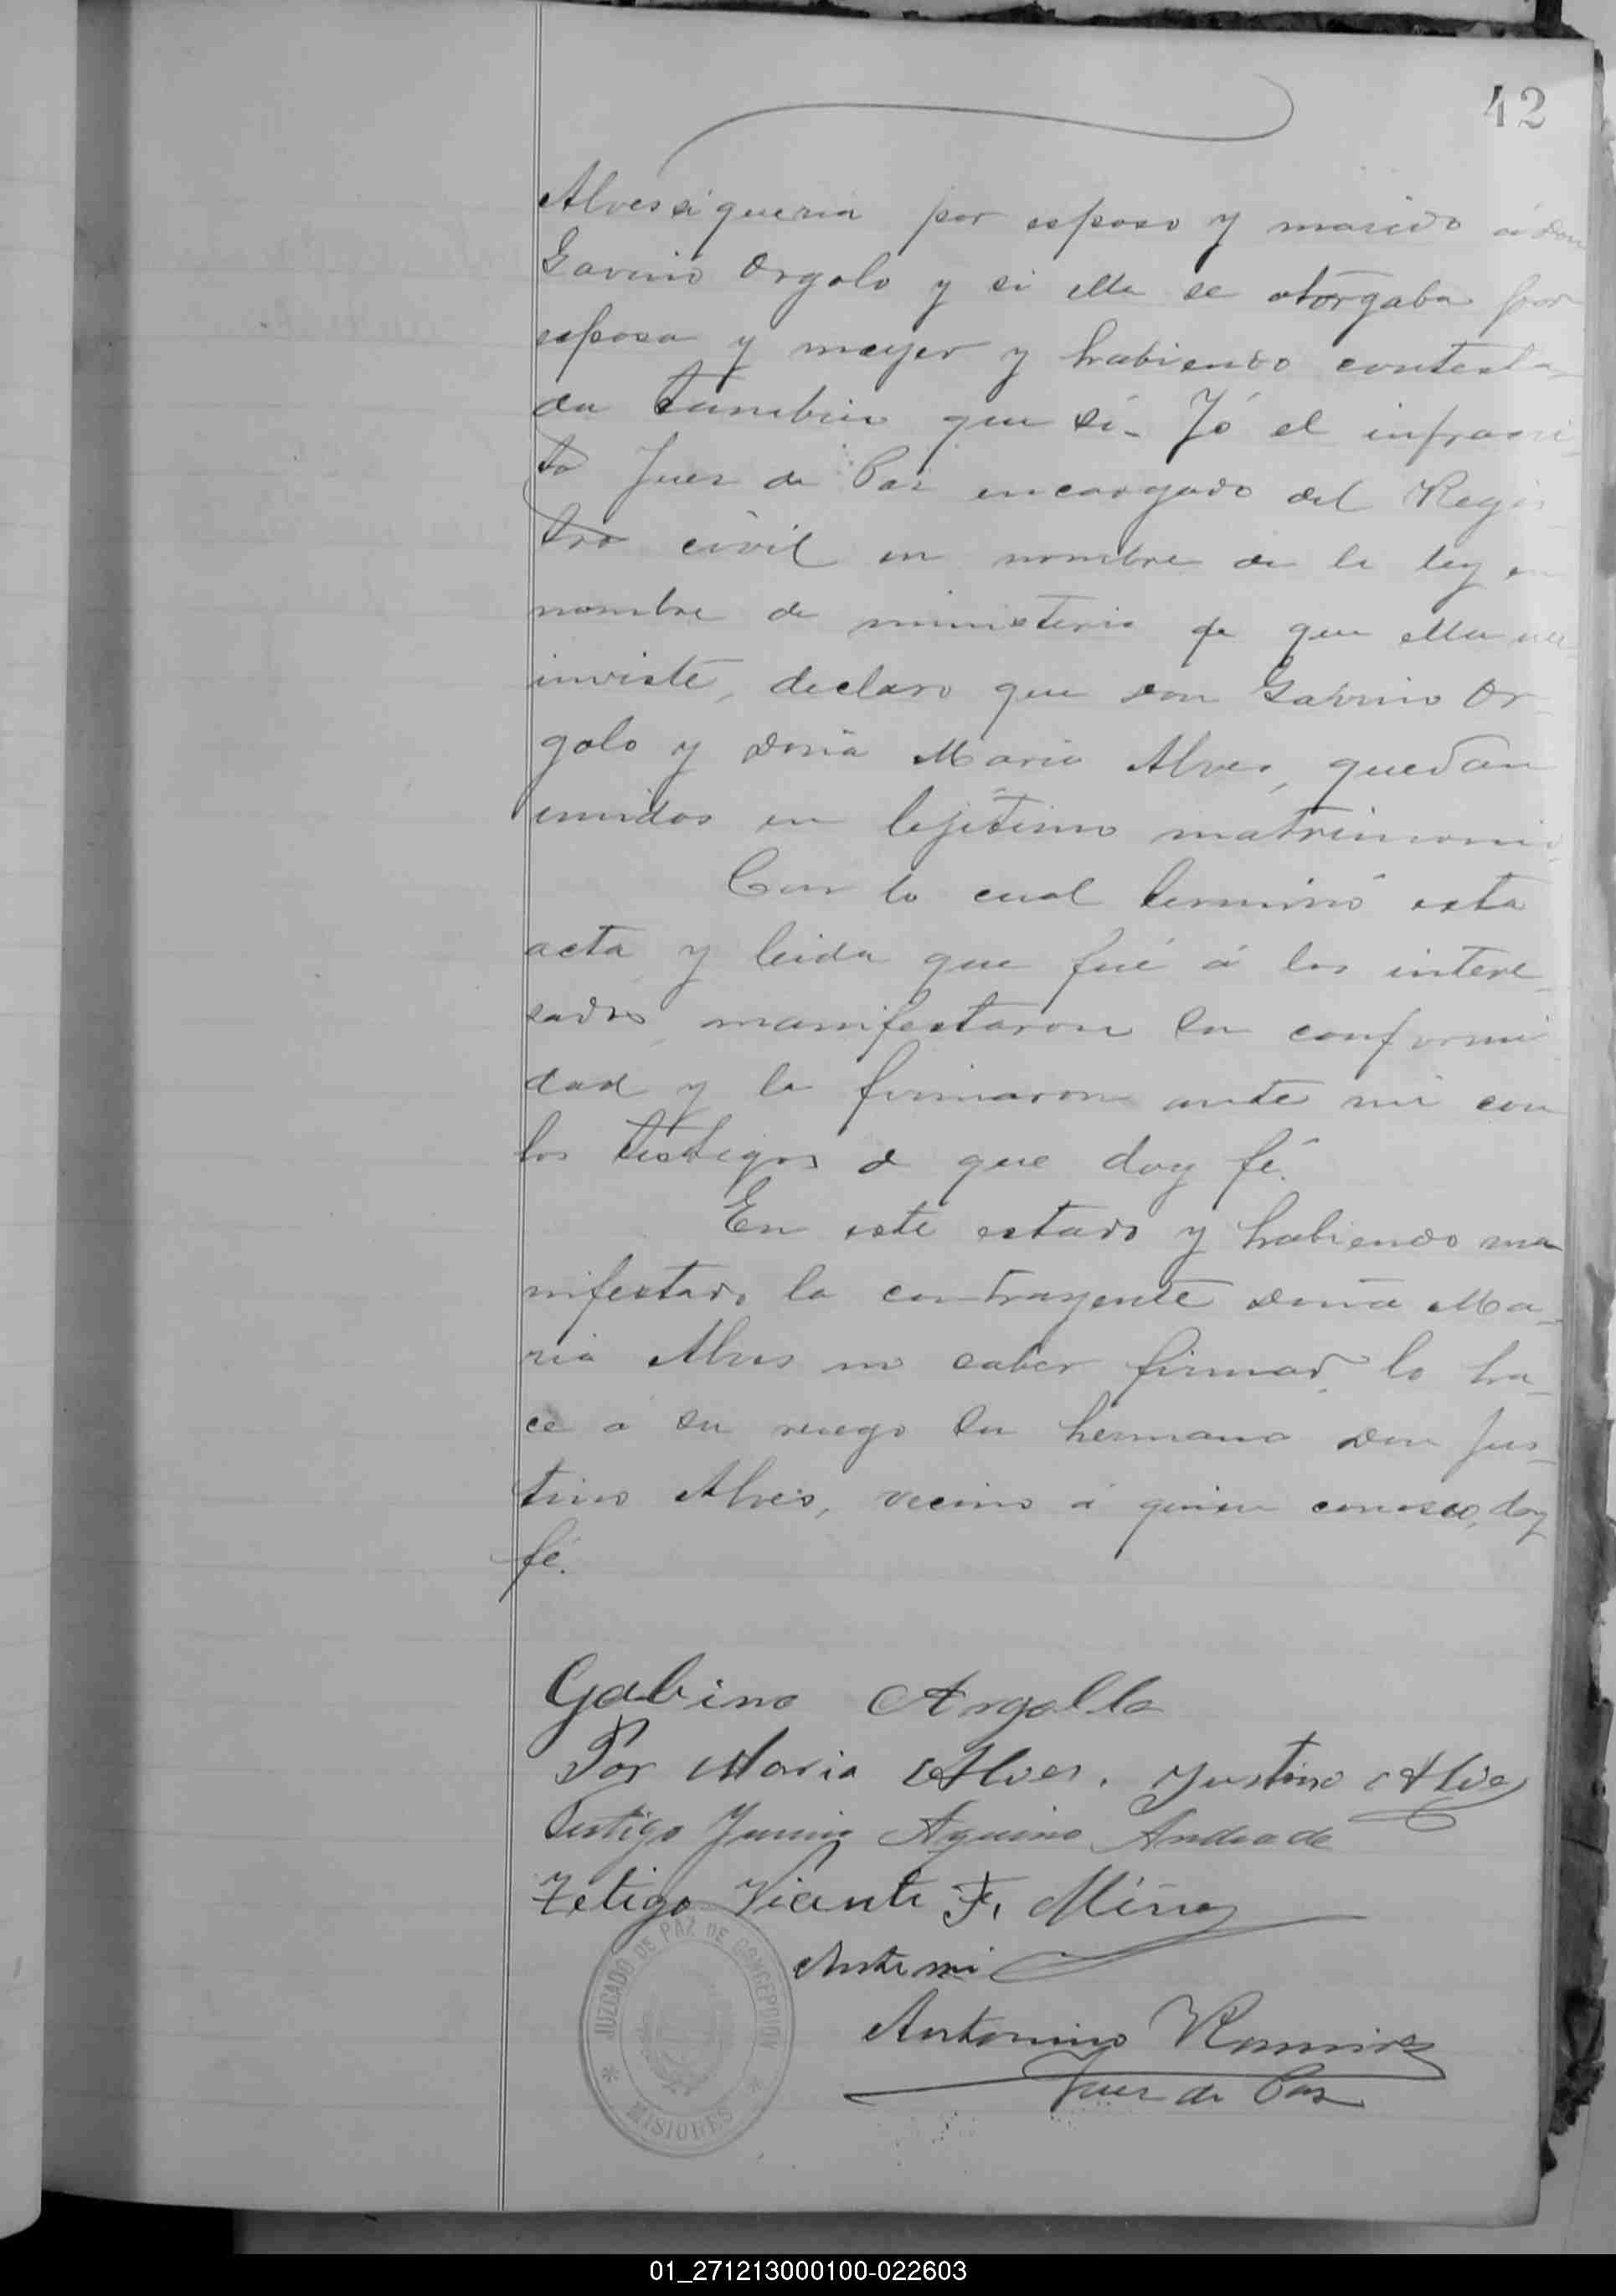 42
Alves si queria por esposo y marido á don
Gavino Orgolo y si ella se otorgaba por
esposa y mujer y habiendo contesta-
da tambien que si- Yó el infrascri-
to Juez de Paz encargado del Regis-
tro civil en nombre de la ley en
nombre de ministerio de que ella me
inviste, declaro que don Gavino Or-
golo y doña Maria Alves, quedan
unidos en lejítimo matrimonio
Con lo cual terminó esta
acta y leida que fué á los intere-
sados, manifestaron su conformi
dad y la firmaron ante mi con
los testigos d que doy fé.
En este estado y habiendo ma
nifestado la contrayente doña Ma-
ria Alves no saber firmar, lo ha-
ce a su ruego su hermano don Jus-
tino Alves, vecino á quien conosco, doy
fé.
Gabino Argollo
Por Maria Alves. Justino Alves
Testigo Aquino Andrade
Tetigo Vicente F. Miño
Ante mi
Antonino Ramirez
Juez de Paz
JUZGADO DE PAZ DE CONCEPCION
* MISIONES *
01_271213000100-022603